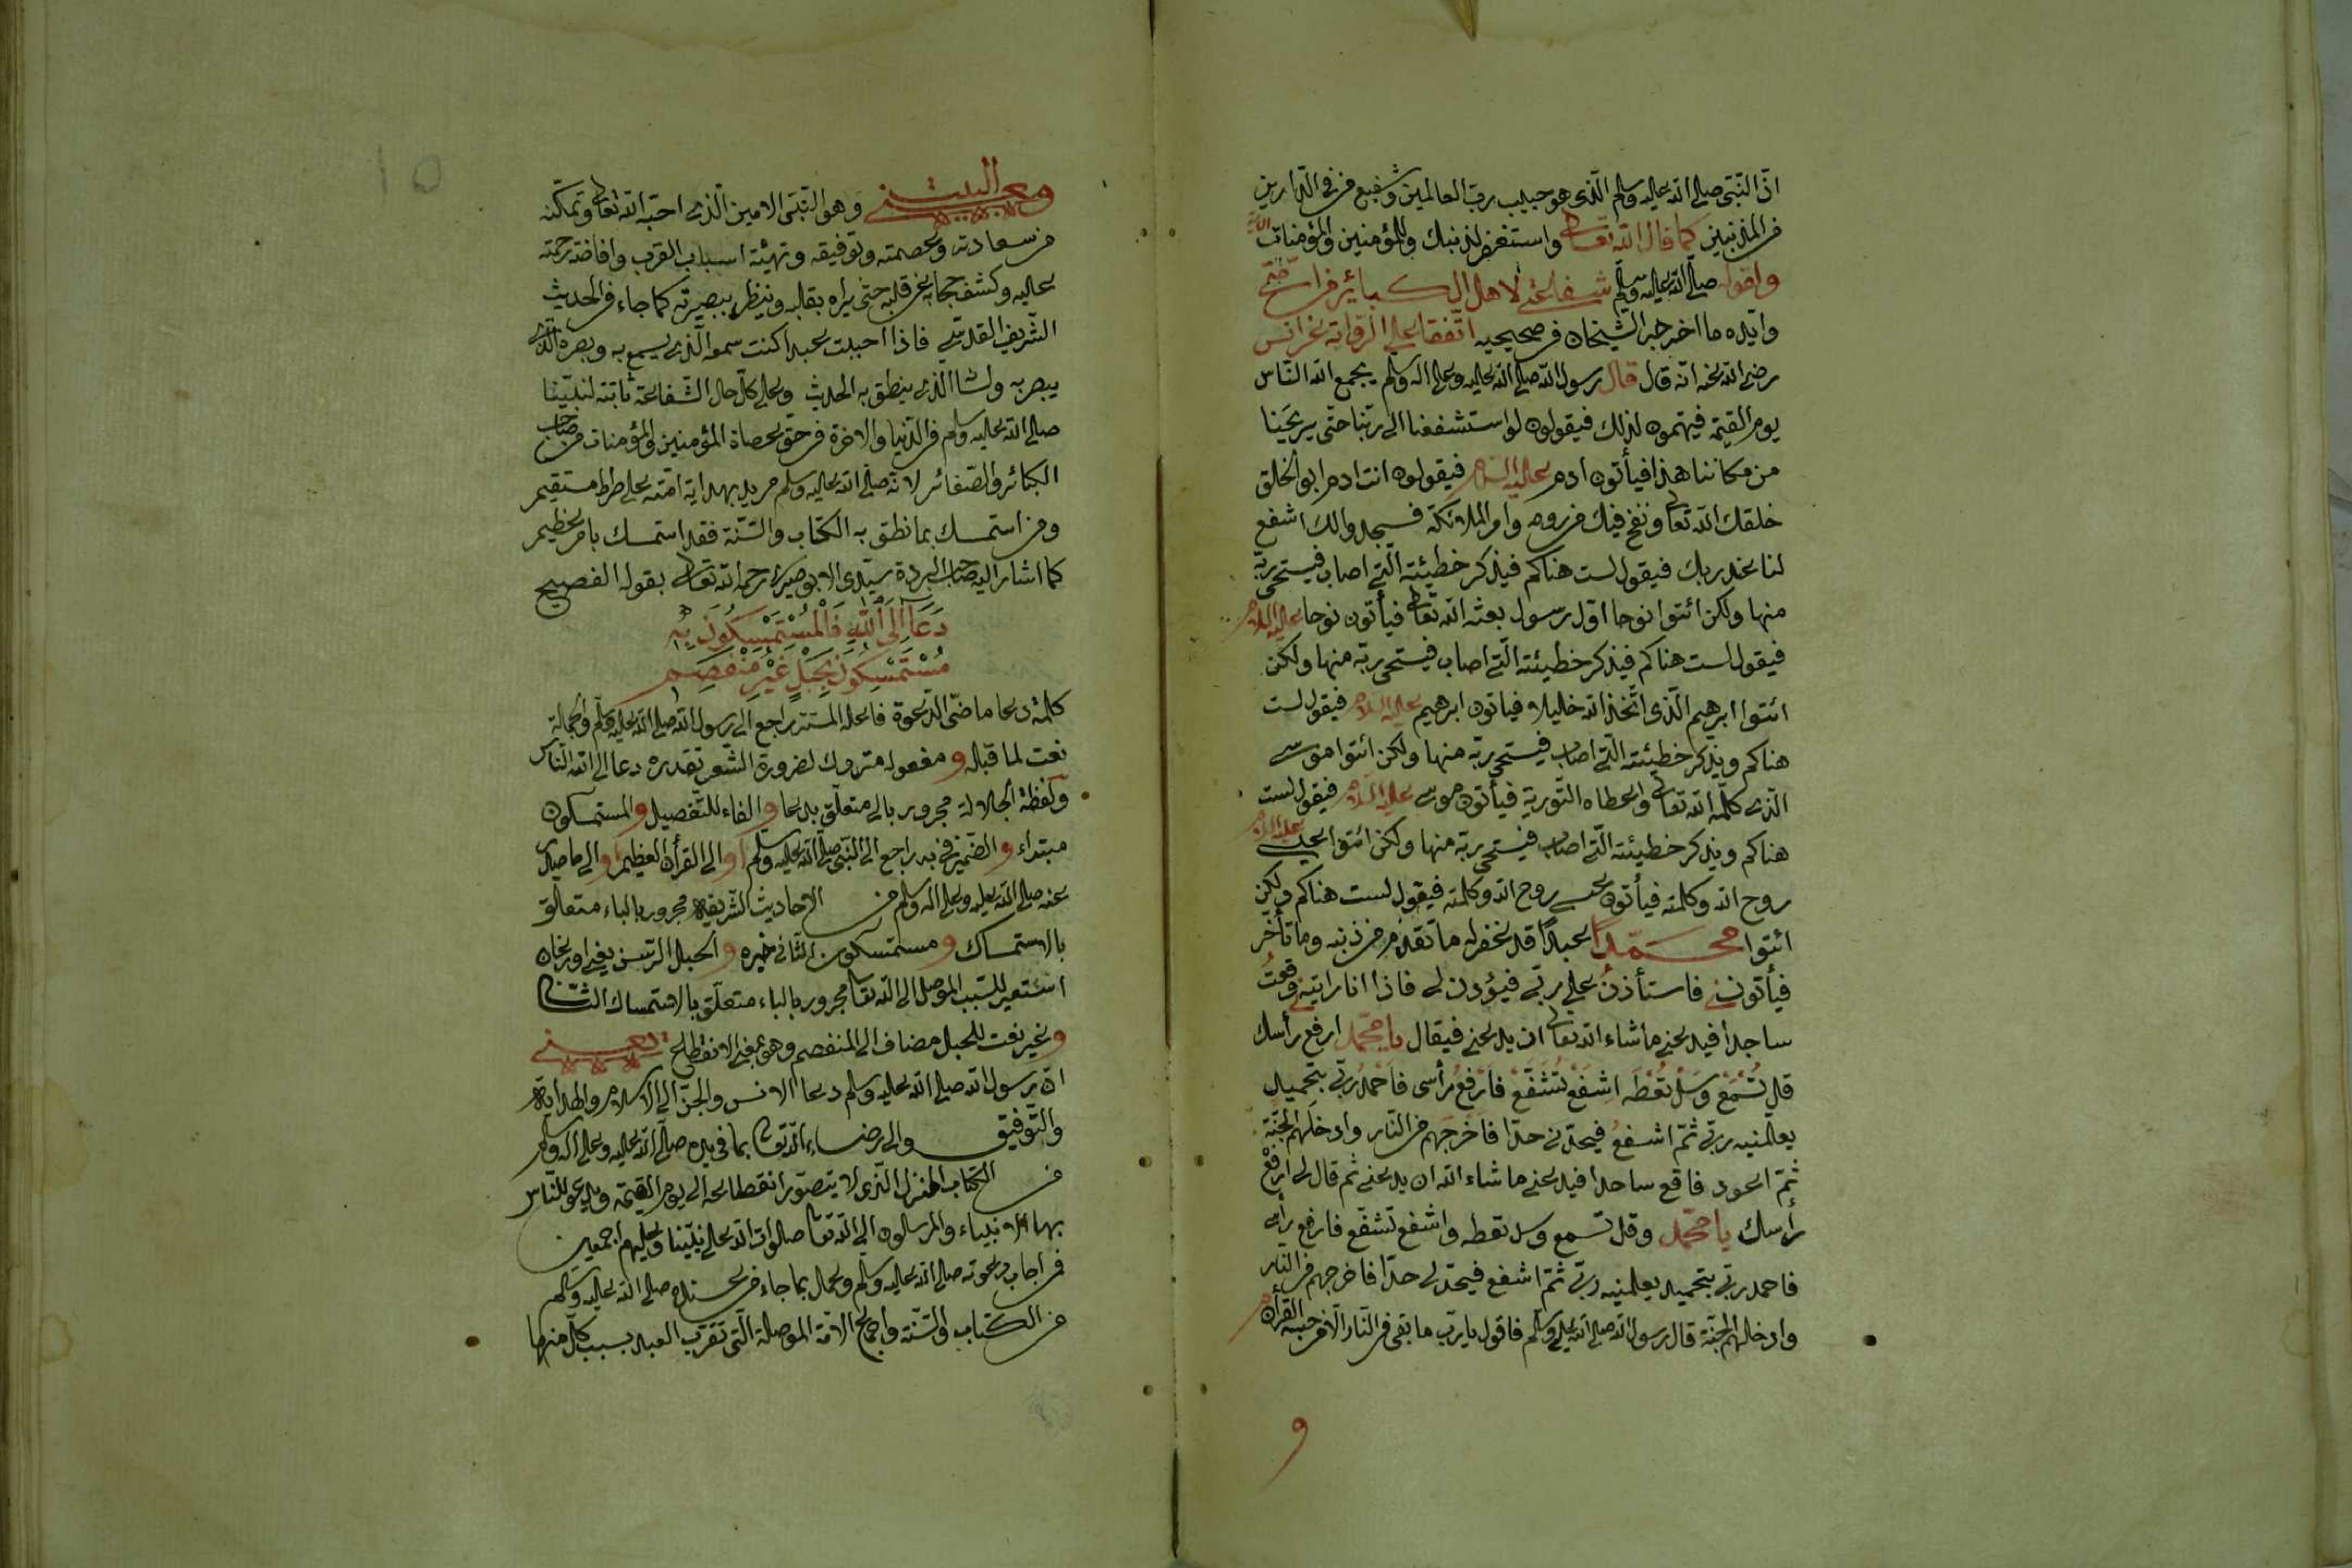 انّ النّبي صلى الله عليه وسلم الّذي هو حبيب ربّ العالمين وشفيع من في الدّارين
من المذنبين كما قال الله تعالى واستغفر لذنبك وللمؤمنين والمؤمنات الآية
ولقوله صلى الله عليه وسلم شفاعتي لاهل الكبائر من امّتي
وايّده ما اخرجه الشّيخان في صحيحيه اتّفقا على الرّواية عن انس
رضي الله عنه انّه قال قال رسول الله صلى الله عليه وعلى اله وسلم يجمع الله النّاس
يوم القيمة فيهتمون لذلك فيقولون لو استشفعنا الى ربّنا حتّى يريحنا
من مكاننا هذا فيأتون ادم عليه السلام فيقولون انت ادم ابو الخلق
خلقك الله تعالى ونفخ فيك من روحه وامر الملائكة فسجدوا لك اشفع
لنا عند ربك فيقول لست هناكم فيذكر خطيئته الّتي اصاب فيستحي ربّه
منها ولكن ائتوا نوحا اوّل رسول بعثه الله تعالى فيأتون نوحا عليه السلام
فيقول لست هناكم فيذكر خطيئته الّتي اصاب فيستحي ربّه منها ولكن
ائتوا ابرهيم الّذي اتّخذ الله خليلا فيأتون ابرهيم عليه السلام فيقول لست
هناكم ويذكر خطيئته الّتي اصاب فيستحي ربّه منها ولكن ائتوا موسى
الّذي كلّمه الله تعالى واعطاه التّورية فيأتون موسى عليه السلام فيقول لست
هناكم ويذكر خطيئته الّتي اصاب فيستحي ربّه منها ولكن ائتوا عيسى عليه السلام
روح الله وكلمته فيأتون عيسى روح الله وكلمته فيقول لست هناكم ولكن
ائتوا محمّدا عبدًا قد غفر له ما تقدّم من ذنبه وما تأخّر
فيأتونني فاستأذنُ على ربّي فيؤذن لي فاذا انا رايته وقعتُ
ساجدا فيدعني ما شاء الله تعالى ان يدعني فيقال يا محمّد ارفع رأسك
قل تُسْمَعْ وَسَلْ تُعْطَه اشفَعْ تُشَفَّعْ فارفعُ رأسي فاحمدُ ربّي بتحميد
يعلّمنيه ربّي ثمّ اشفعُ فيحدّ لي حدّا فاخرجهم من النّار وادخلهم الجنّة
ثمّ اعود فاقع ساجدا فيدعني ما شاء الله ان يدعني ثم قال لي ارفعْ
رأسك يا محمّد وقل تسمع وسل تعطه واشفع تشفّع فارفع رأسي
فاحمد ربّي بتحميد يعلمنيه ربّي ثمّ اشفع فيحدّ لي حدّا فاخرجهم من النّار
وادخلهم الجنّة قال رسول الله صلى الله عليه وسلم فاقول يا ربّ ما بقي في النّار الّا من حبسه القرأن
و
ومعنى البيت وهو النّبيّ الامين الّذي احبّه الله تعالى وتمكّنه
من سعادته وعصمته وتوفيقه وتهيئة اسباب القرب وافاضة رحمته
عليه وكشف حجابه عن قلبه حتى يراه بقلبه وينظر ببصيرته كما جاء في الحديث
الشّريف القدسّي فاذا احببت عبدا كنت سمعه الّذي يسمع به وبصره الّذي
يبصر به ولسانه الّذي ينطق به الحديث وعلى كلّ حال الشّفاعة ثابتة لنبيّنا
صلى الله عليه وسلم في الدّنيا والاخرة في حق عصاة المؤمنين والمؤمنات من صاحب
الكبائر والصّغائر لانّه صلى الله عليه وسلم مريد بهداية امّته على صراط مستقيم
ومن استمسك بما نطق به الكتاب والسّنّة فقد استمسك بامر عظيم
كما اشار اليه صاحب البردة سيّدي الابوصيري رحمه الله تعالى بقوله الفصيح
دَعَا اِلَى اللهِ فَالْمُسْتَمْسِكُونَ بِهِ
مُسْتَمْسِكُونَ بِحَبْلٍ غَيْرِ مُنْفَصِمِ
كلمة دعا ماضي الدّعوة فاعله المستتر راجع الى رسول الله صلى الله عليه وسلم والجملة
نعت لما قبله و مفعوله متروك لضرورة الشّعر تقديره دعا الى الله النّاس
ولفظة الجلالة مجرور بالى متعلّق بدعا والفاء للتّفصيل والمستمسكون
مبتداء والضّمير في به راجع الى النّبي صلى الله عليه وسلم او الى القرأن العظيم او الى ما صدر
عنه صلى الله عليه وعلى اله وسلم من الاحاديث الشّريفة مجرور بالباء متعلّق
بالاستمساك و مستمسكون الثّاني خبره والحبل الرّسن يعني اورغان
استعير للسّبب الموصل الى الله تعالى مجرور بالباء متعلّق بالاستمساك الثّاني
وغير نعت للحبل مضاف الى المنفصم وهو بمعنى الانقطاع يعني
انّ رسول الله صلى الله عليه وسلم دعا الانس والجنّ الى الاسلام والهداية
والتّوفيق والى رضاء الله تعالى بما في يده صلى الله عليه وعلى اله وسلم
من الكتاب المنزل الّذي لا يتصوّر انقطاعه الى يوم القيمة ويدعو للنّاس
بها الانبياء والمرسلون الى الله تعالى صلوات الله على نبيّنا وعليهم اجمعين
فمن اجاب دعوته صلى الله عليه وسلم وعمل بما جاء من عنده صلى الله عليه وسلم
من الكتاب والسّنّة واجماع الامّة الموصلة الّتي تقرّب العبد بسبب كلّ منها